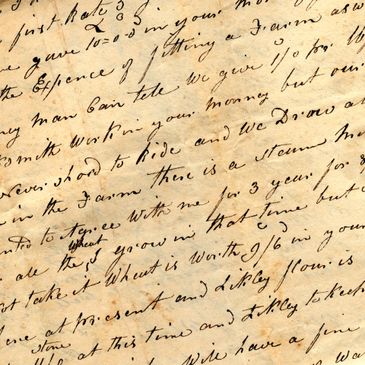 first Rate 3
gave 10=0=0 in your
the Expence of fitting a Farm as w
man Can tell We give 1/0 pr lb
Smith Work in your money but our
hord to Ride and We Draw a
in the Farm there is a Steam M
to Agree with me for 3 year for
all the wheat I grow in that time but
not take it Wheat is Worth 9/6 in your
at present and Likley flour is
stone at this time and Likley to keep
Will have a fine